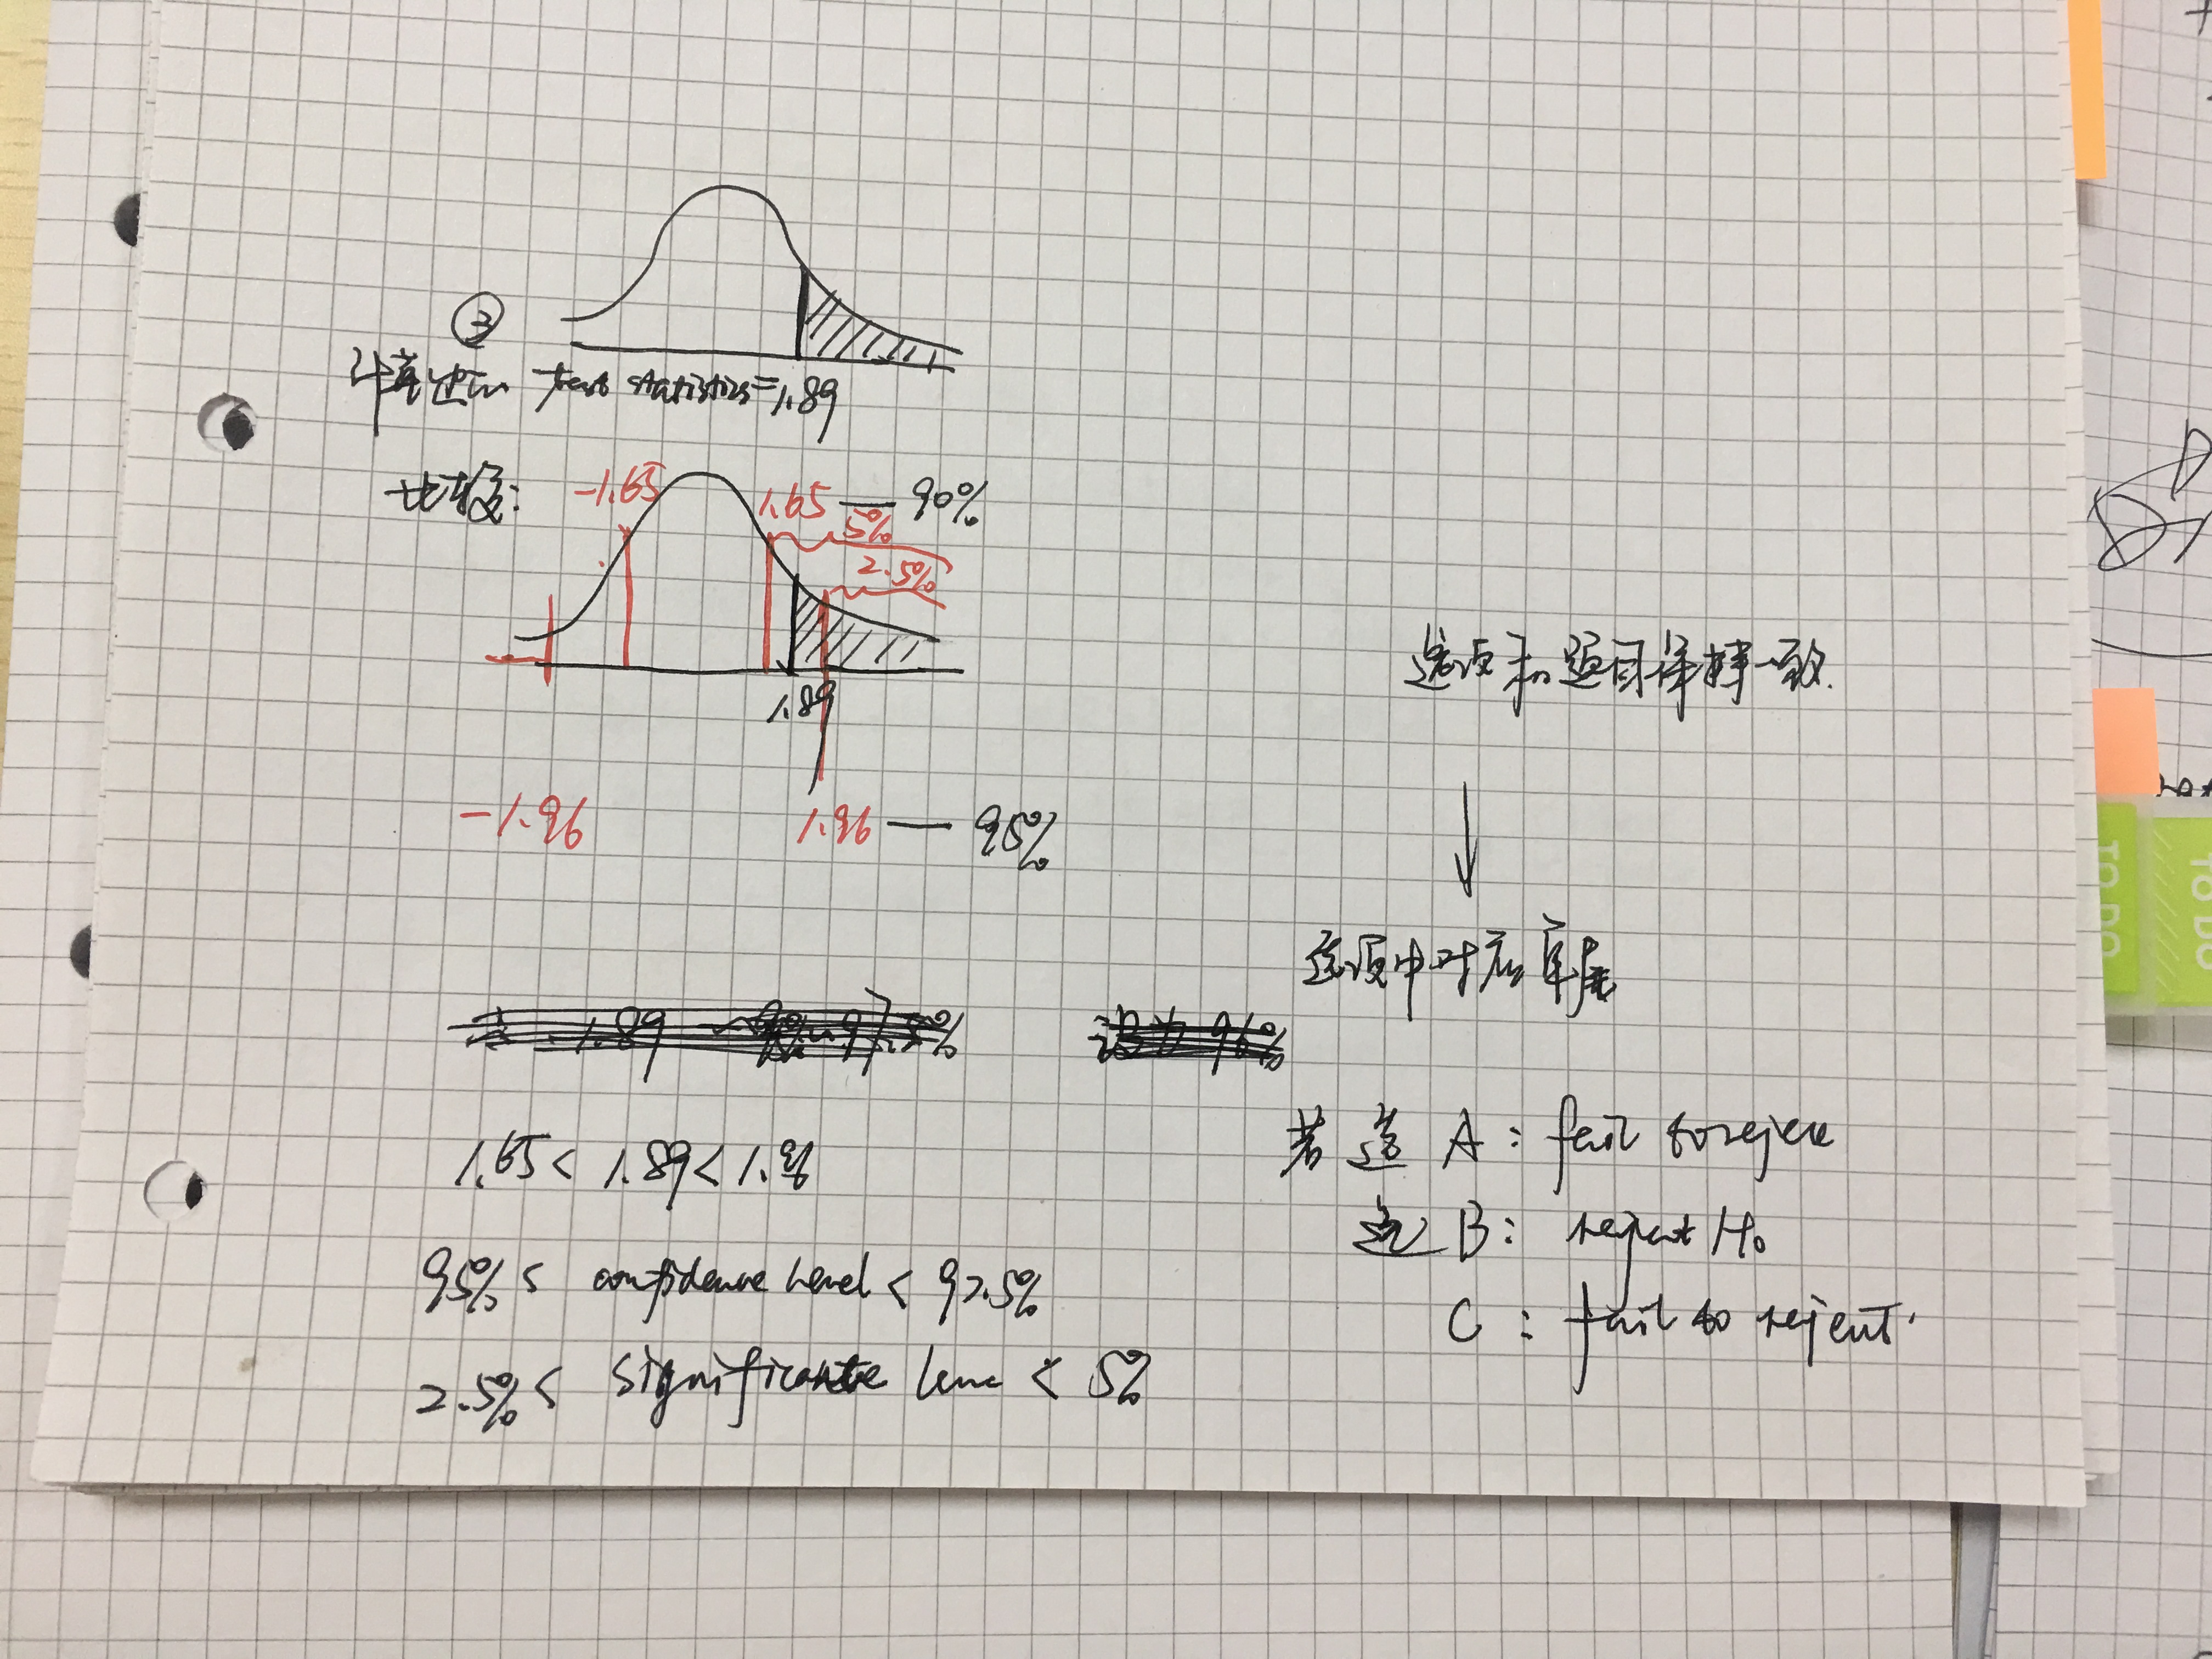 ③
计算出 test statistics=1.89
比较:
-1.65
1.65 — 90%
5%
2.5%
1.89
-1.96
1.96 — 95%
1.65 < 1.89 < 1.96
95% < confidence level < 97.5%
2.5% < significante leve < 5%
选项和题目保持一致.
选项中对应
若选 A: fail to rejece
选 B: reject H₀
C: fail to reject.
TO DO
TO DO